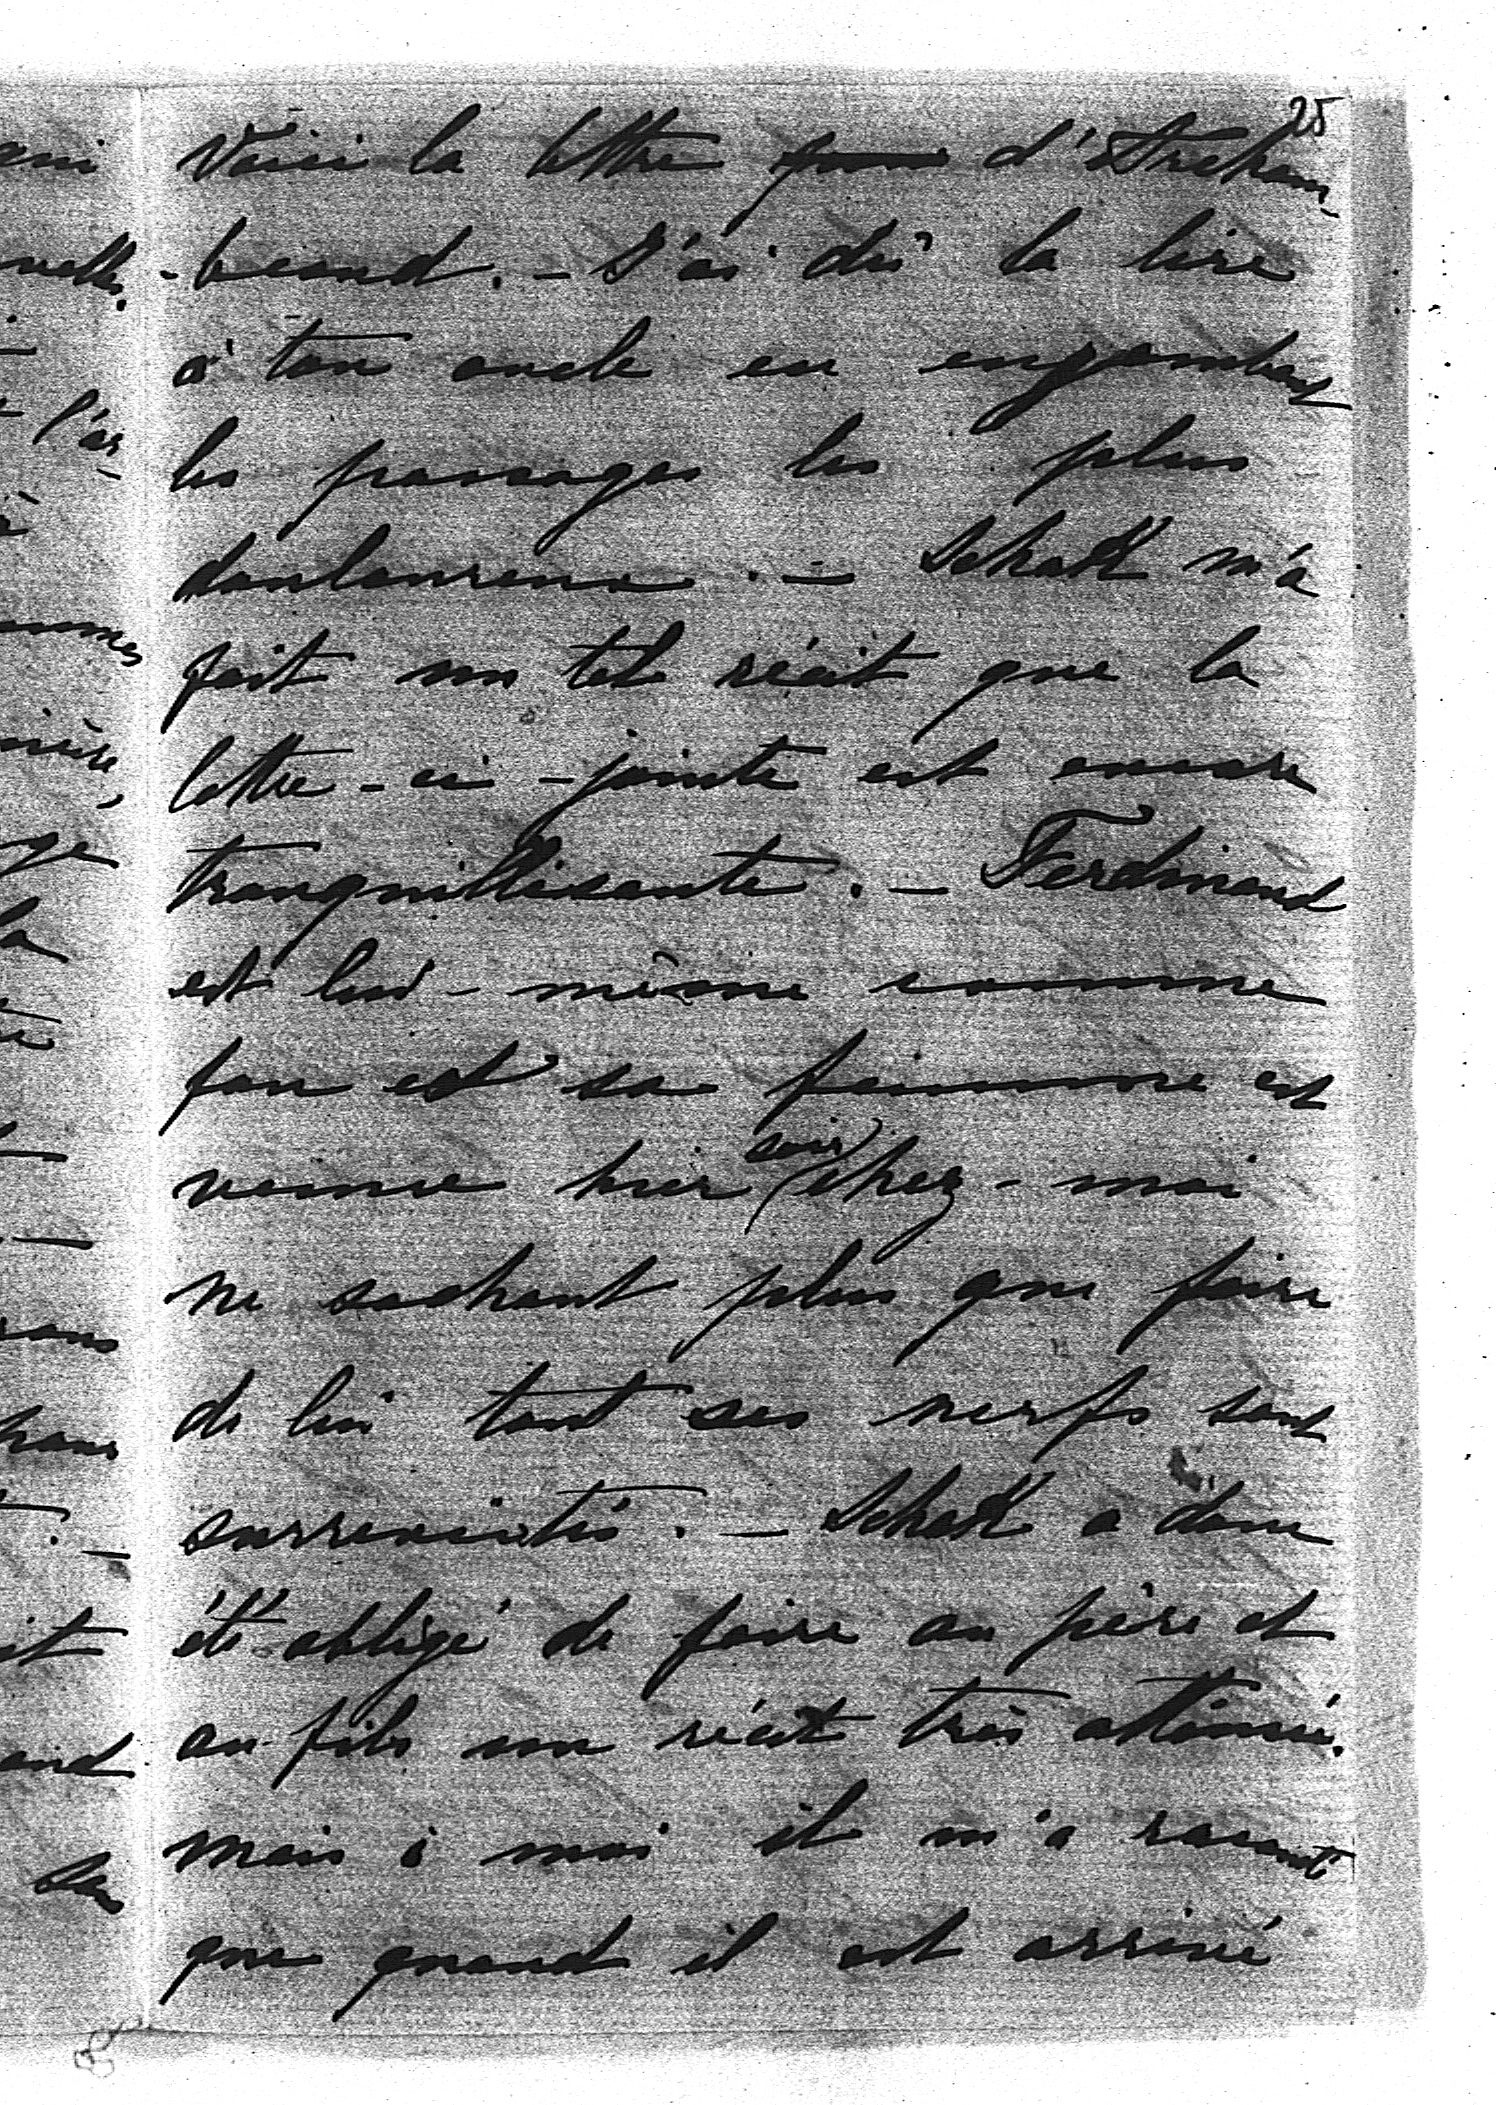 25
Voici la lettre d'Archam-
-beaud. - J'ai dû la lire
à ton oncle en enjambant
les passages les plus
douloureux. - Schatt m'a
fait un tel récit que la
lettre-ci-jointe est encore
tranquillisante. - Ferdinand
est lui-même comme
fou et sa femme est
venue hier soir chez-moi
ne sachant plus que faire
de lui tant ses nerfs sont
surrexcités. - Schatt a donc
été obligé de faire au père et
au fils un récit très atténué.
mais à moi il m'a raconté
que quand il est arrivé